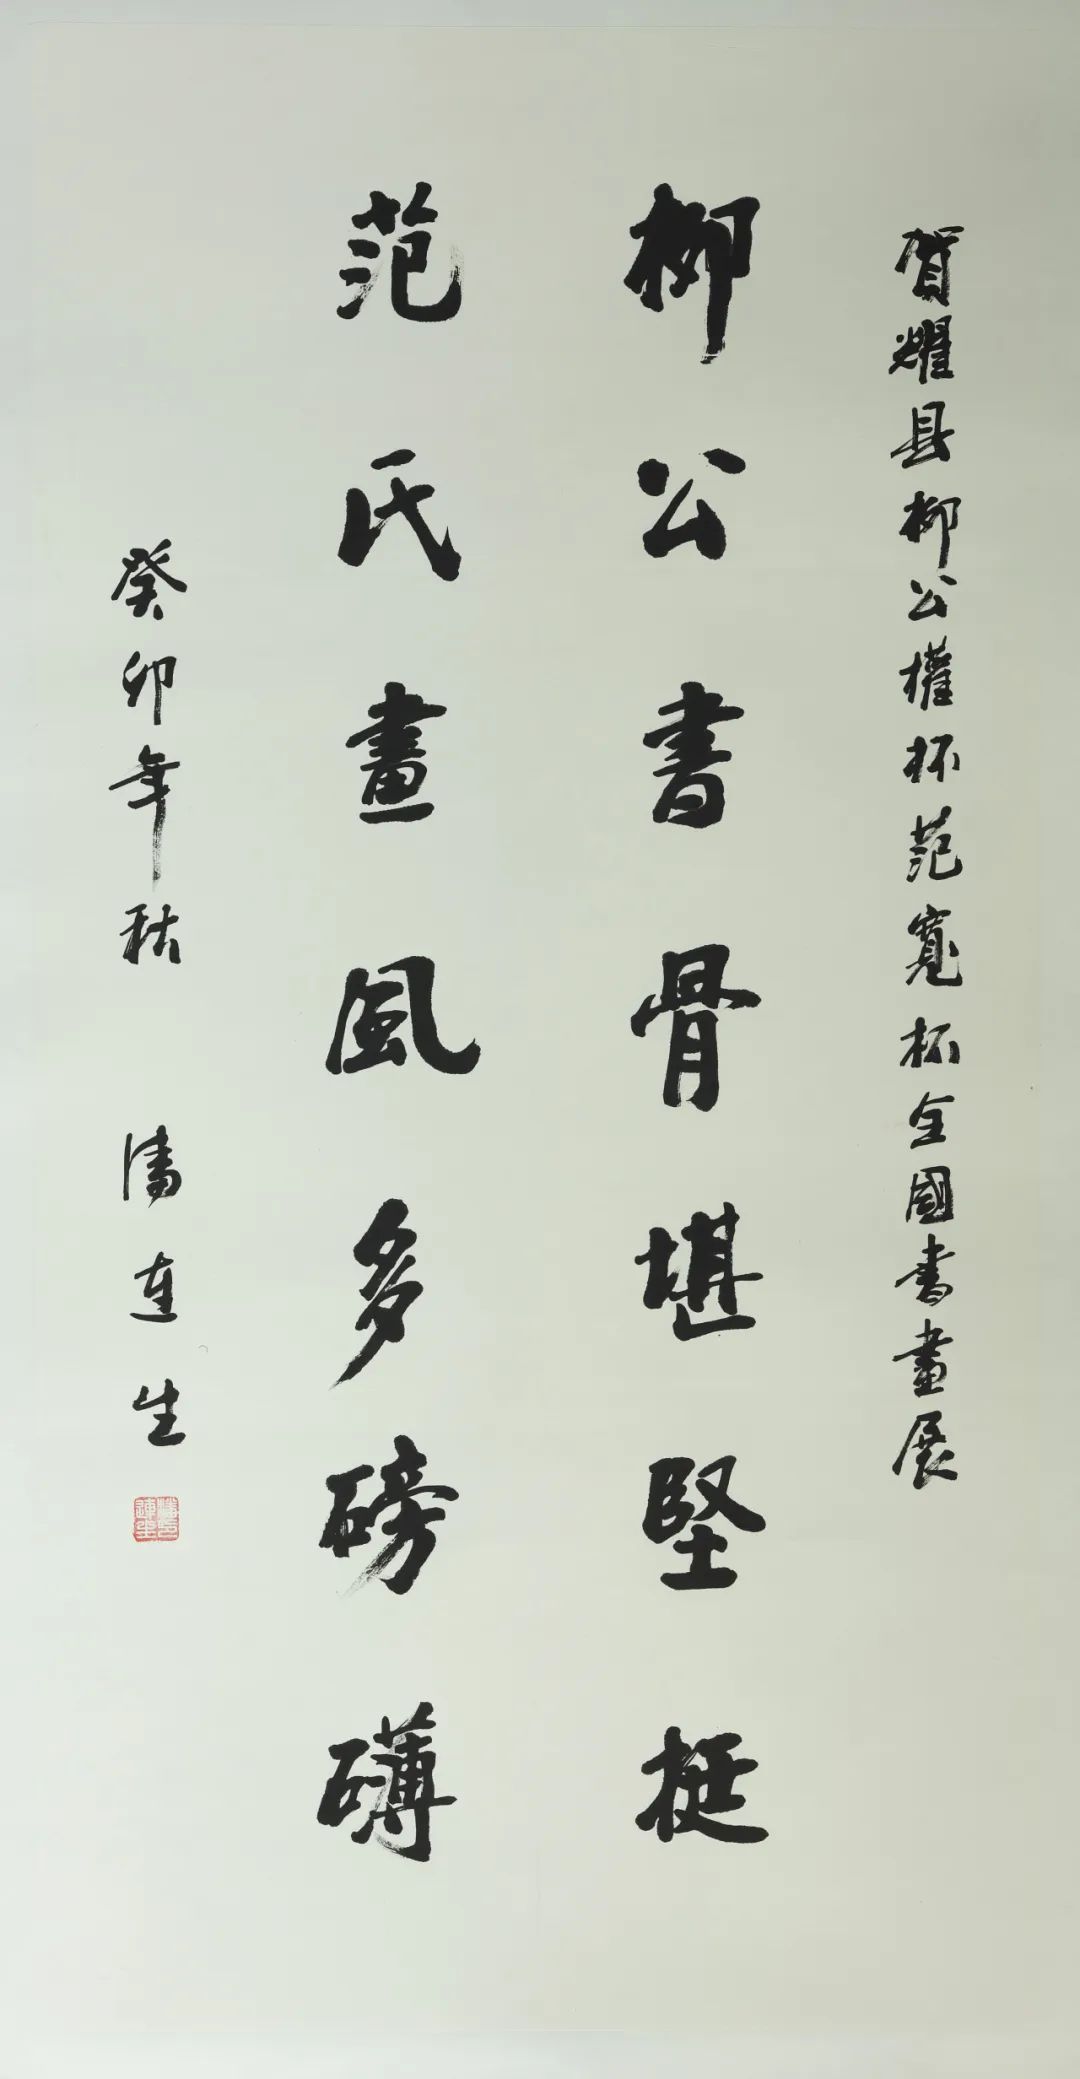 賀耀县柳公權杯范寬杯全國書畫展
柳公書骨堪堅挺
范氏畫風多磅礴
癸卯年秋 潘連生